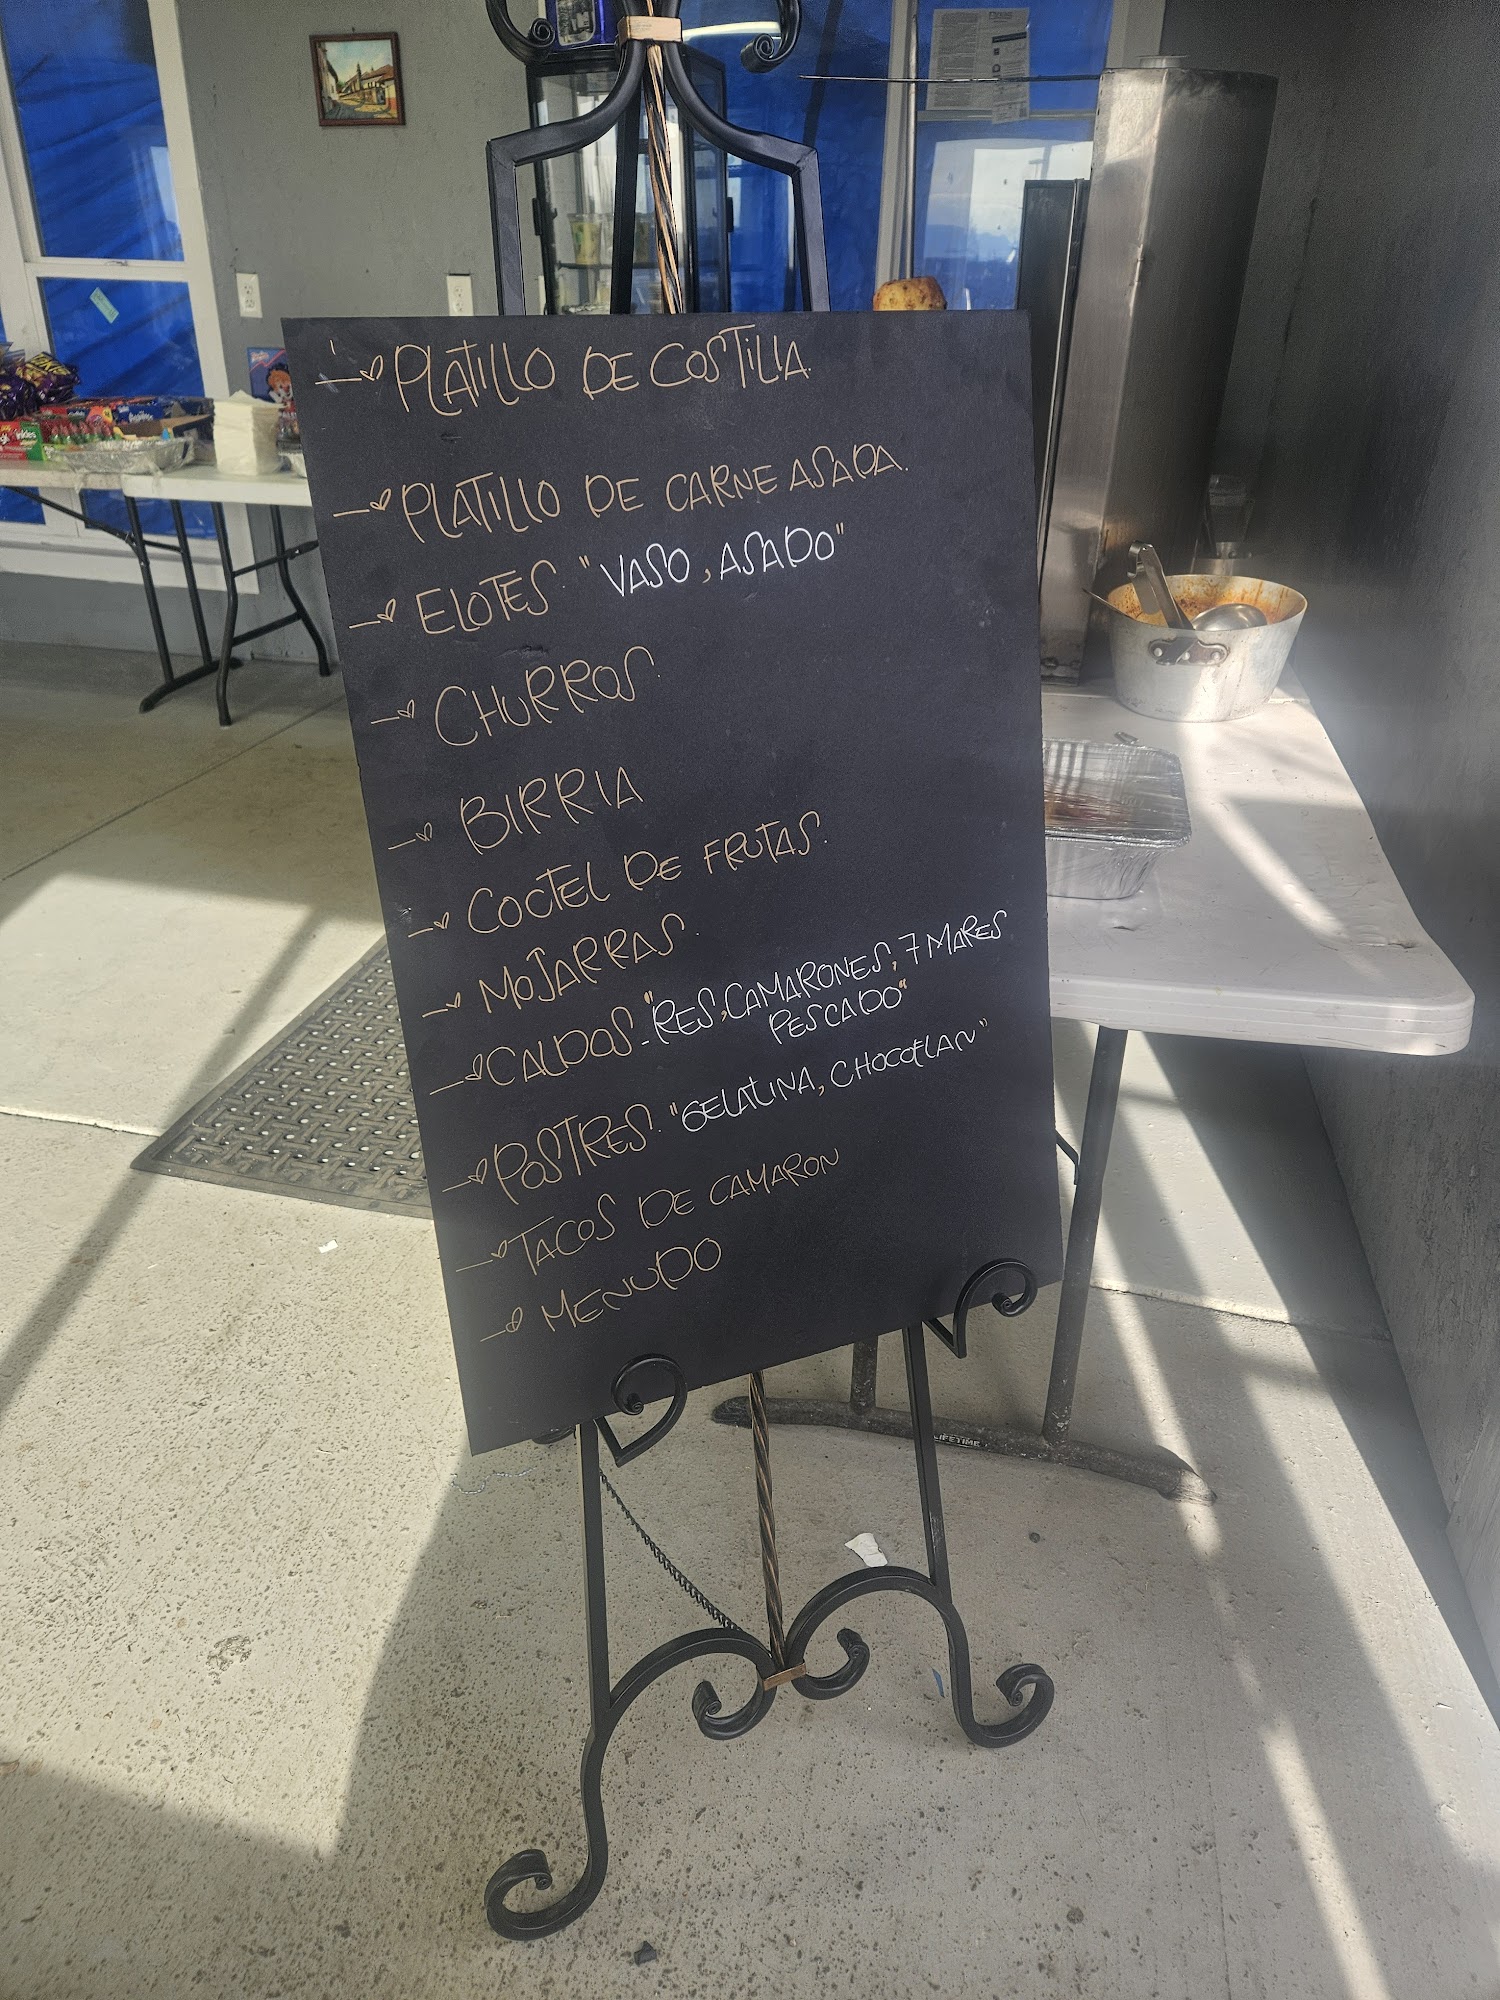 PLATILLO DE COSTILLA.
PLATILLO DE CARNE ASADA.
ELOTES. "VASO, ASADO"
CHURROS.
BIRRIA
COCTEL DE FRUTAS.
MOJARRAS.
CALDOS. "RES, CAMARONES, 7 MARES
PESCADO"
POSTRES. "GELATINA, CHOCOFLAN"
TACOS DE CAMARON
MENUDO
LIFETIME